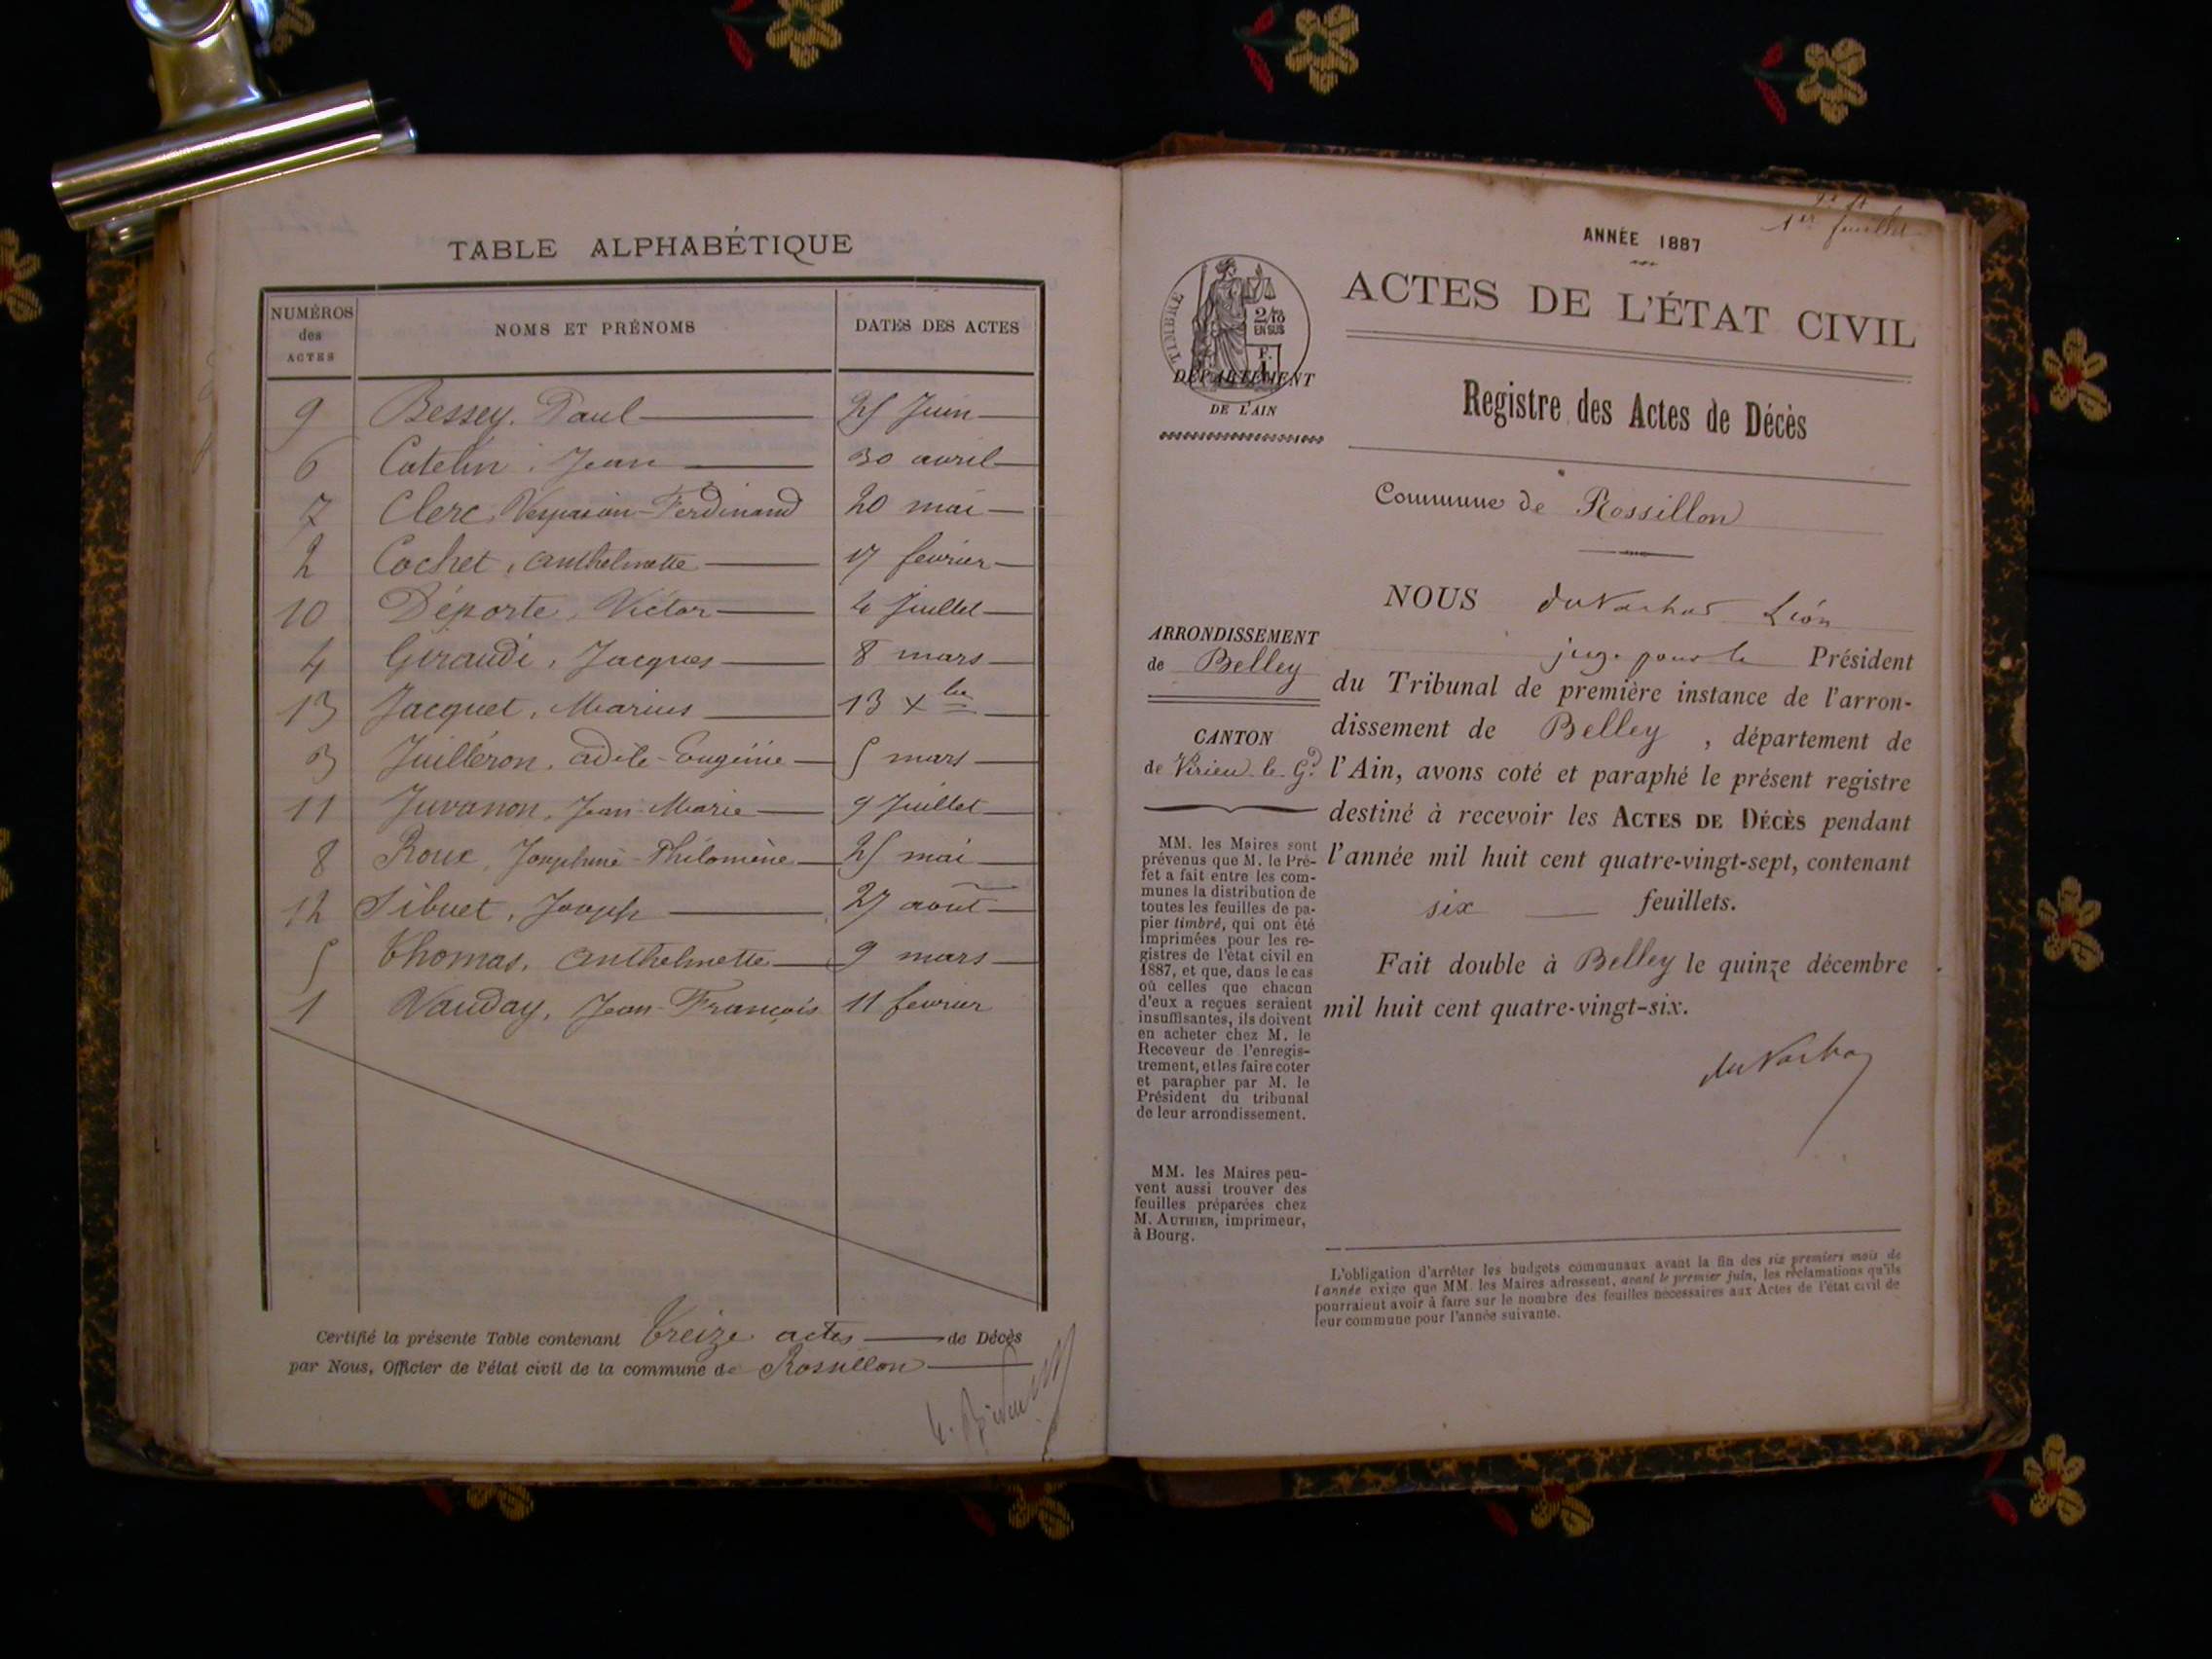 TABLE ALPHABÉTIQUE
NUMÉROS des ACTES | NOMS ET PRÉNOMS | DATES DES ACTES
9 Bessey. Paul 25 Juin
6 Catelin, Jean 30 avril
7 Clerc, Vespasien-Ferdinand 20 mai
2 Cochet, anthelmette 17 fevrier
10 Déporte, Victor 4 Juillet
4 Giraudi, Jacques 8 mars
13 Jacquet, Marius 13 Xbre
3 Juilléron, adèle-Eugénie 5 mars
11 Juvanon, Jean-Marie 9 Juillet
8 Roux, Joséphine-Philomène 25 mai
12 Sibuet, Joseph 27 août
5 Thomas, anthelmette 9 mars
1 Vauday, Jean-François 11 fevrier
Certifié la présente Table contenant Treize actes de Décès
par Nous, Officier de l'état civil de la commune de Rossillon
1er feuillet
ANNÉE 1887
ACTES DE L'ÉTAT CIVIL
TIMBRE
2/10
EN SUS
F.
1
DÉPARTEMENT
DE L'AIN
Registre des Actes de Décès
Commune de Rossillon
ARRONDISSEMENT
de Belley
CANTON
de Virieu-le-Gd
MM. les Maires sont
prévenus que M. le Pré-
fet a fait entre les com-
munes la distribution de
toutes les feuilles de pa-
pier timbré, qui ont été
imprimées pour les re-
gistres de l'état civil en
1887, et que, dans le cas
où celles que chacun
d'eux a reçues seraient
insuffisantes, ils doivent
en acheter chez M. le
Receveur de l'enregis-
trement, et les faire coter
et parapher par M. le
Président du tribunal
de leur arrondissement.
MM. les Maires peu-
vent aussi trouver des
feuilles préparées chez
M. AUTHIER, imprimeur,
à Bourg.
NOUS Léon
juge pour le Président
du Tribunal de première instance de l'arron-
dissement de Belley, département de
l'Ain, avons coté et paraphé le présent registre
destiné à recevoir les ACTES DE DÉCÈS pendant
l'année mil huit cent quatre-vingt-sept, contenant
six feuillets.
Fait double à Belley le quinze décembre
mil huit cent quatre-vingt-six.
L'obligation d'arrêter les budgets communaux avant la fin des six premiers mois de
l'année exige que MM. les Maires adressent, avant le premier juin, les réclamations qu'ils
pourraient avoir à faire sur le nombre des feuilles nécessaires aux Actes de l'état civil de
leur commune pour l'année suivante.